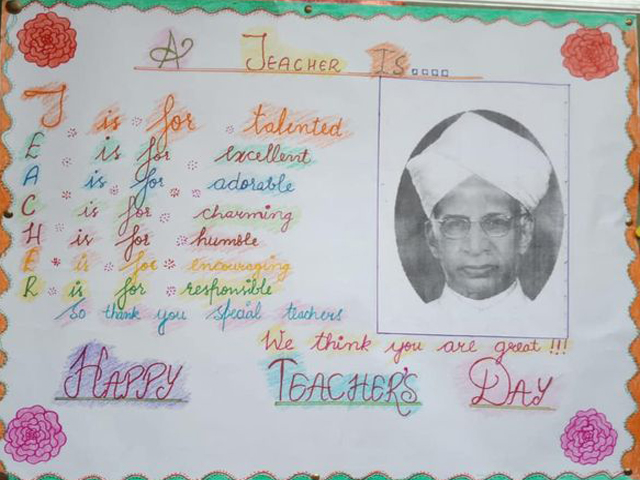 A TEACHER IS....
T is for talented
E is for excellent
A is for adorable
C is for charming
H is for humble
E is for encouraging
R is for responsible
So thank you special teachers
We think you are great !!!
HAPPY TEACHER'S DAY